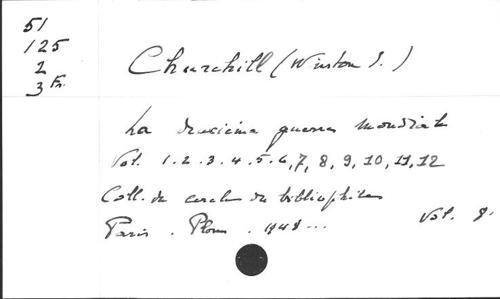 51
125
2
3 Fr.
Churchill (Winston S.)
La deuxième guerre mondiale
Vol. 1.2.3.4.5.6,7,8,9,10,11,12
Coll. du cercle du bibliophile
Paris. Plon. 1948...
Vol. 8.